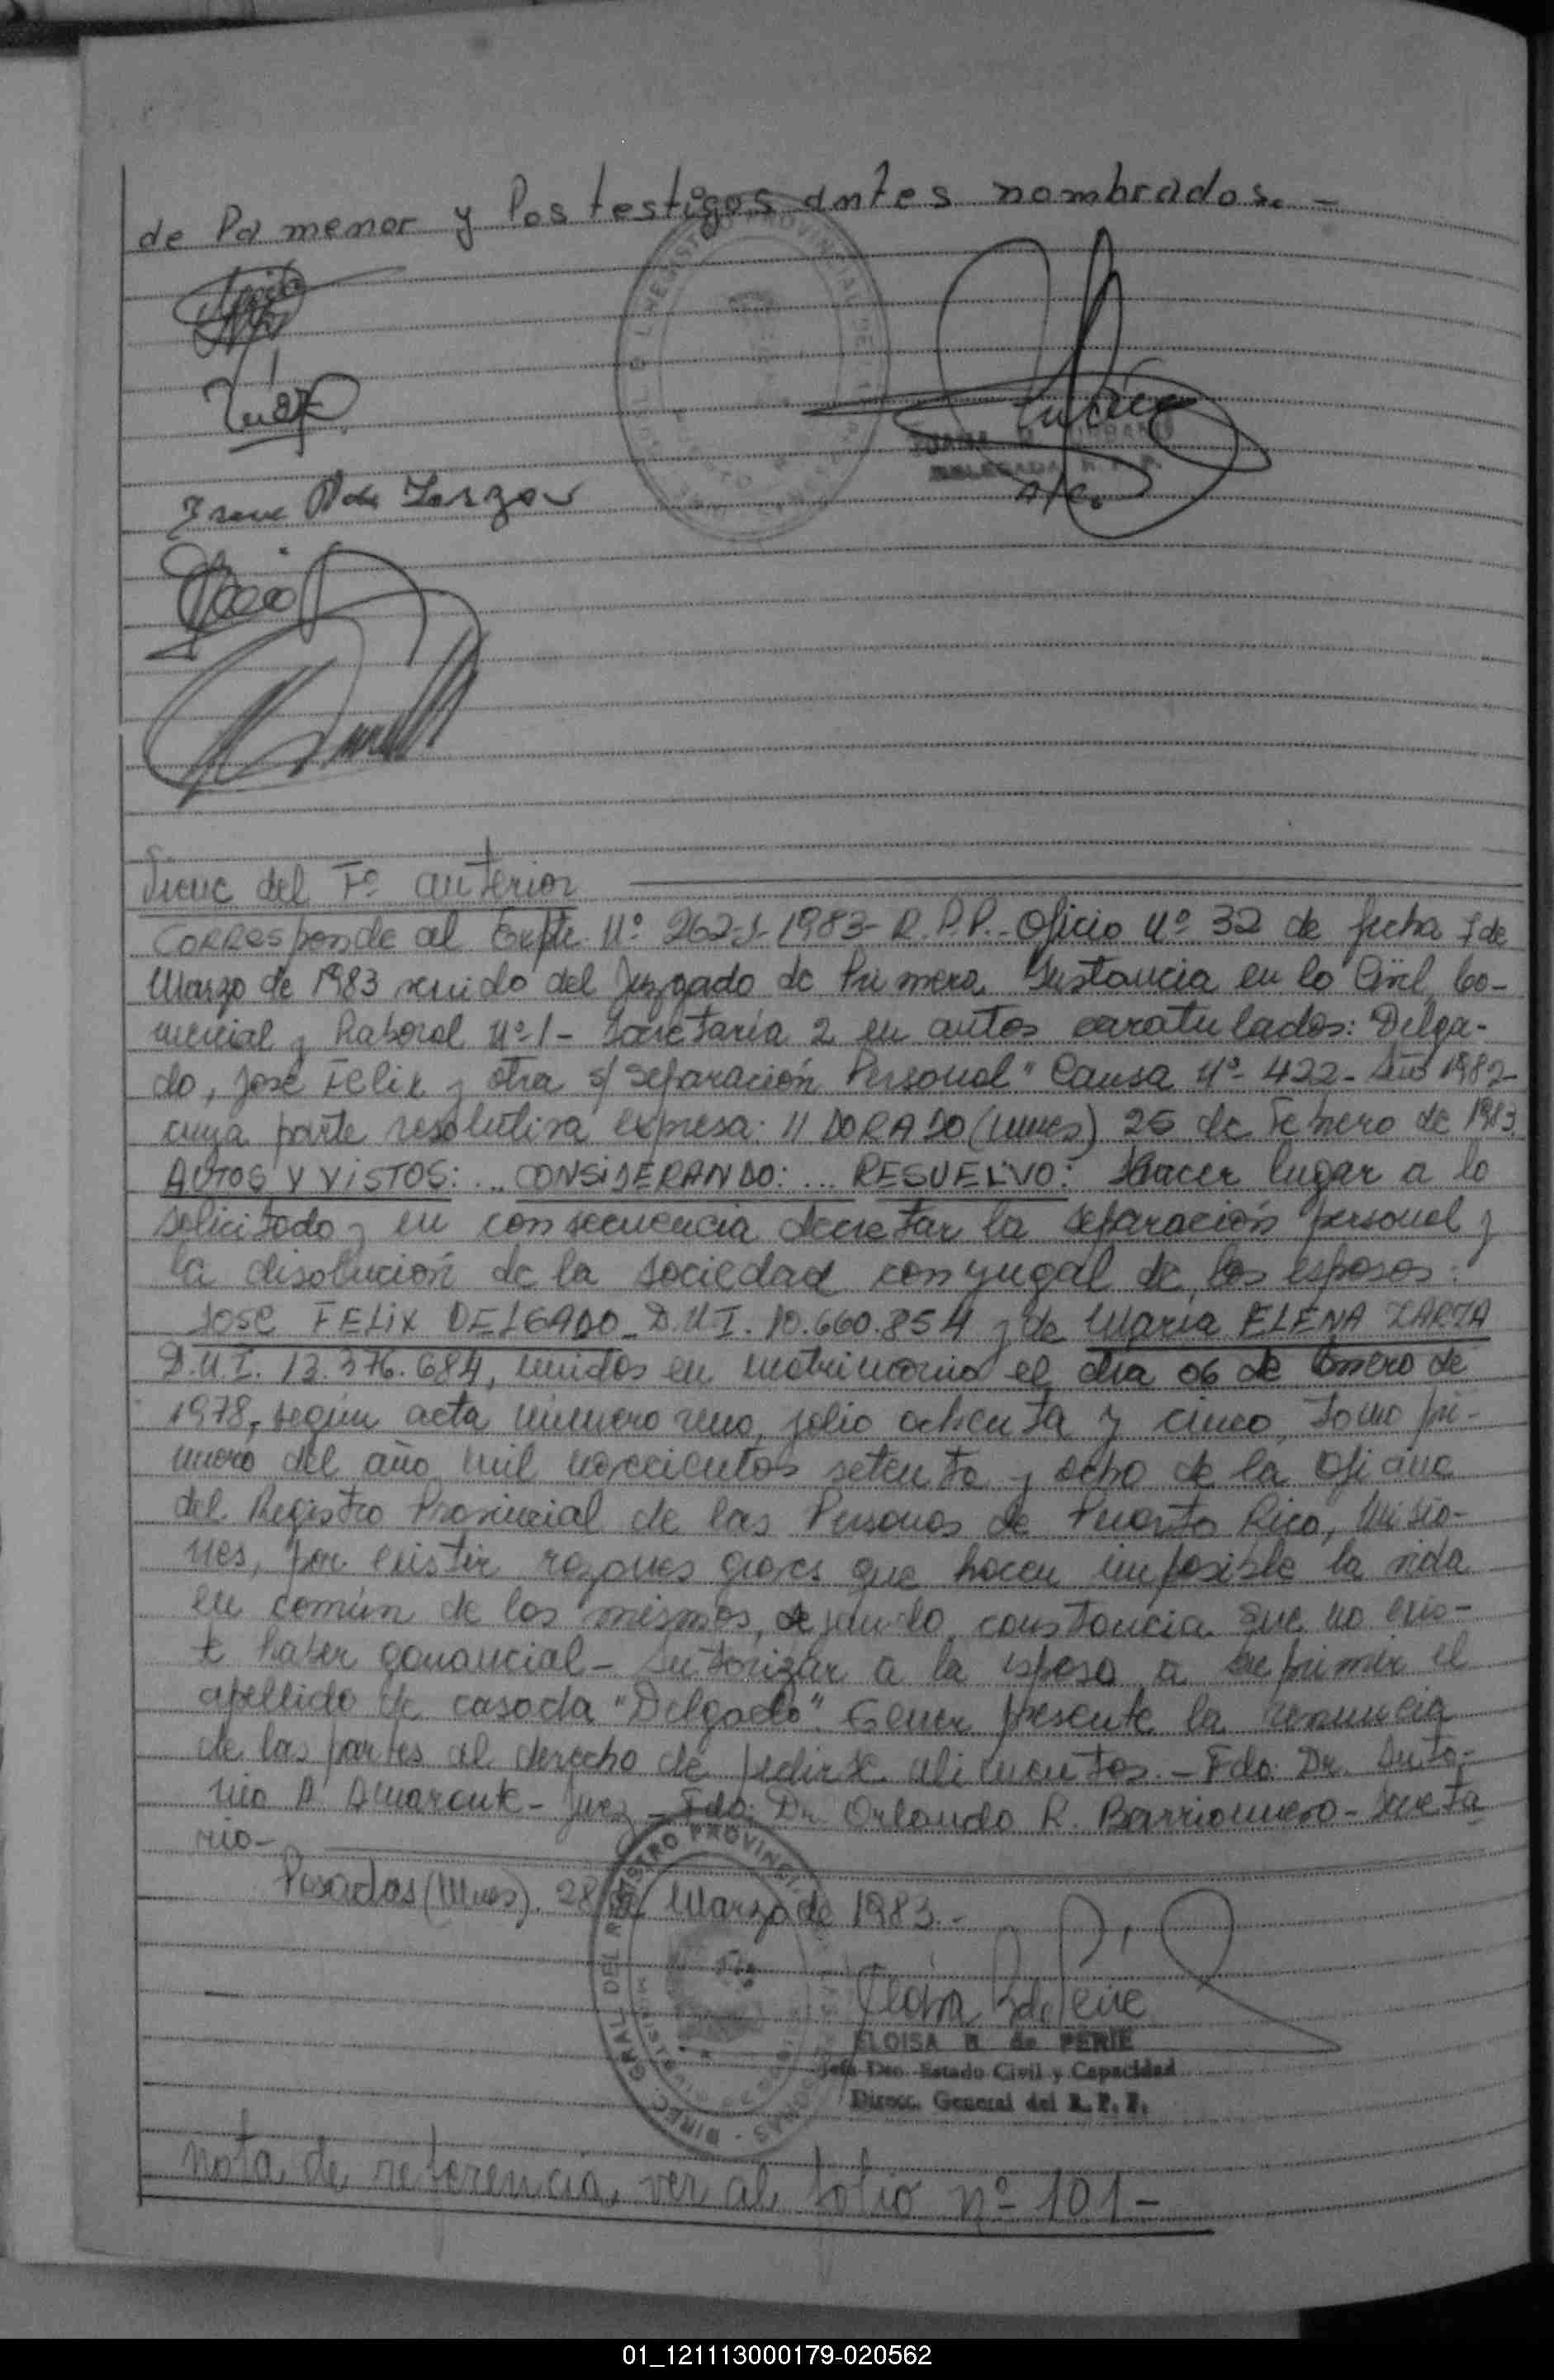 de la menor y los testigos antes nombrados. -
JUANA
DELEGADA R. P. P.
a/c.
Viene del Fº anterior
Corresponde al Expte. Nº 262-J-1983- R.P.P.- Oficio Nº 32 de fecha 7 de
Marzo de 1983 venido del Juzgado de Primera Instancia en lo Civil, Co-
mercial y Laboral Nº 1- Secretaría 2 en autos caratulados: Delga-
do, José Felix y otra s/ Separación Personal" Causa Nº 422- Año 1982-
cuya parte resolutiva expresa: "DORADO (Mnes) 25 de Febrero de 1983
AUTOS Y VISTOS: ... CONSIDERANDO: ... RESUELVO: Hacer lugar a lo
solicitado y en consecuencia decretar la separación personal y
la disolución de la sociedad conyugal de los esposos:
JOSE FELIX DELGADO - D.N.I. 10.660.854 y de María ELENA ZARZA
D.N.I. 13.376.684, unidos en matrimonio el día 06 de Enero de
1978, según acta número uno, folio ochenta y cinco, tomo pri-
mero del año mil novecientos setenta y ocho de la Oficina
del Registro Provincial de las Personas de Puerto Rico, Misio-
nes, por existir razones graves que hacen imposible la vida
en común de los mismos, dejando constancia que no exis-
te haber ganancial - Autorizar a la esposa a suprimir el
apellido de casada "Delgado". Tener presente la renuncia
de las partes al derecho de pedirse alimentos. - Fdo: Dr. Anto-
nio A. Amarante - Juez - Fdo: Dr. Orlando R. Barrionuevo - Secreta
rio -
Posadas (Mnes). 28 de Marzo de 1983. -
ELOISA B. de PERIE
Jefa Dto. Estado Civil y Capacidad
Direcc. General del R. P. P.
nota de referencia, ver al folio nº 101 -
01_121113000179-020562